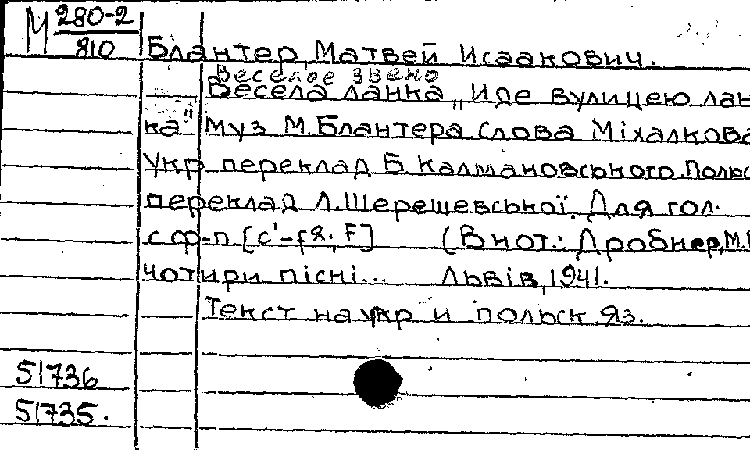 М 280-2
810
Блантер, Матвей Исаакович.
Веселое звено
Весела ланка „Иде вулицею лан
ка" Муз М. Блантера слова Міхалкова
Укр переклад Б. Калмановського. Польс
переклад Л. Шерешевської. Для гол.
с ф-п [c'-f
(В нот.: Дробнер, М.
чотири пісні... Львів, 1941.
Текст на укр и польск яз.
51736
51735.